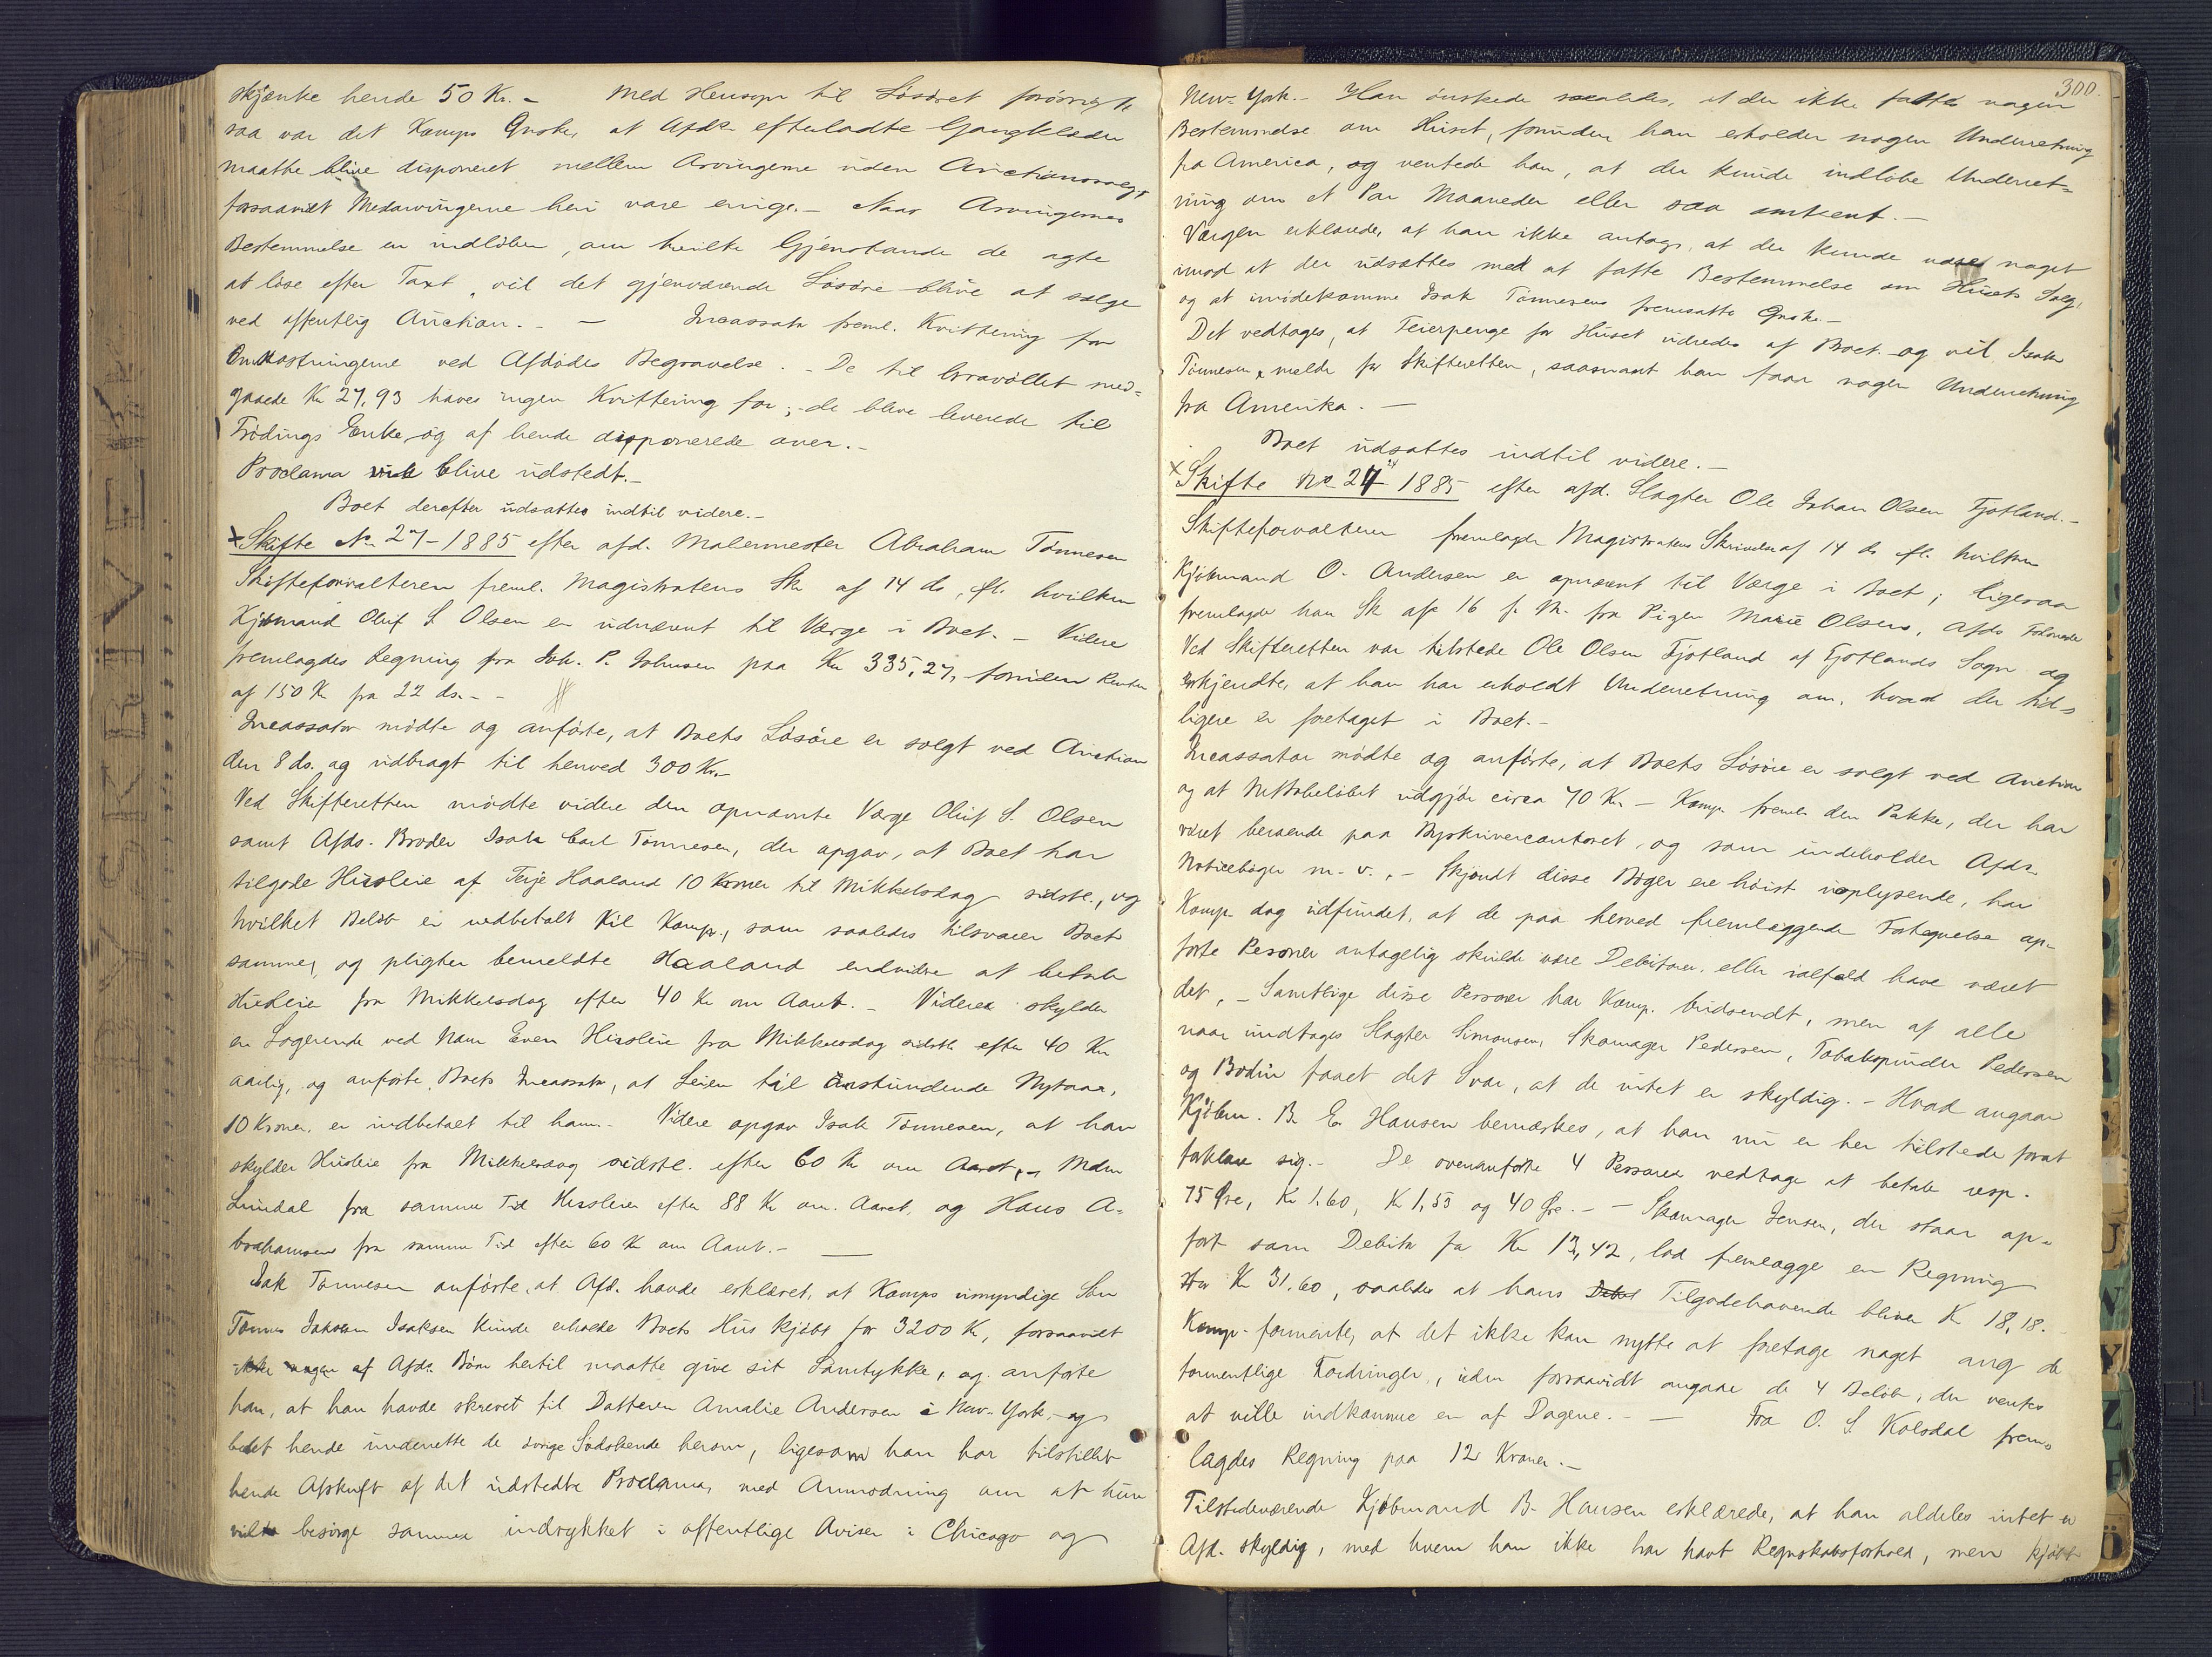 skjænke hende 50 Kr. – Med Hensyn til Løsøret forøvrigt
saa var det Komps Ønske, at Afdes efterladte Gangklæder
maatte blive disponeret mellem Arvingerne uden Auctionssalg,
forsaavidt Medarvingerne heri vare enige. – Naar Arvingernes
Bestemmelse er indløben, om hvilke Gjenstande de agte
at løse efter Taxt, vil det gjenværende Løsøre blive at sælge
ved offentlig Auction. – – Incassator freml. Kvittering for
Omkostningerne ved Afdødes Begravelse. – De til Gravøllet med=
gaaede Kr 27,93 haves ingen Kvittering for; – de bleve leverede til
Frødings Enke og af hende disponerede over. –
Proclama vil blive udstedt. –
Boet derefter udsattes indtil videre. –
× Skifte No 27 – 1885 efter afd. Malermester Abraham Tønnesen
Skifteforvalteren freml. Magistratens Skr af 14 ds, ifl. hvilken
Kjøbmand Oluf S Olsen er udnævnt til Værge i Boet. – Videre
fremlagdes Regning fra Joh. P. Johnsen paa Kr 335,27, foruden Renter
af 150 Kr fra 22 ds. – –
Incassator mødte og anførte, at Boets Løsøre er solgt ved Auction
den 8 ds. og udbragt til henved 300 Kr. –
Ved Skifteretten mødte videre den opnævnte Værge Oluf S. Olsen
samt Afds. Broder Isak Carl Tønnesen, der opgav, at Boet har
tilgode Husleie af Terje Haaland 10 Kroner til Mikkelsdag sidstl., og
hvilket Beløb er indbetalt til Komp., som saaledes tilsvarer Boet
samme, og pligter bemeldte Haaland endvidre at betale
Husleie fra Mikkelsdag efter 40 Kr om Aaret. – Videre skylder
en Logerende ved Navn Even Husleie fra Mikkelsdag sidstl. efter 40 Kr
aarlig, og anførte Boets Incassator, at Leien til anstundende Nytaar,
10 Kroner, er indbetalt til ham. – Videre opgav Isak Tønnesen, at han
skylder Husleie fra Mikkelsdag sidstl. efter 60 Kr om Aaret, – Mdm
Lundal fra samme Tid Husleie efter 88 Kr om Aaret, og Hans A=
brahamsen fra samme Tid efter 60 Kr om Aaret. – –
Isak Tønnesen anførte, at Afd. havde erklæret, at Komps umyndige Søn
Tønnes Isaksen kunde erholde Boets Hus kjøbt for 3200 Kr, forsaavidt
ikke nogen af Afds. Børn hertil maatte give sit Samtykke, og anførte
han, at han havde skrevet til Datteren Amalie Andersen i New-York, og
bedet hende underrette de øvrige Sødskende herom, ligesom han har tilstillet
hende Afskrift af det udstedte Proclama, med Anmodning om at hun
vilde besørge samme indrykket i offentlige Aviser i Chicago og
300.
New-York. – Han ønskede saaledes, at der ikke fattes nogen
Bestemmelse om Huset, forinden han erholder nogen Underretning
fra America, og ventede han, at der kunde indløbe Underret=
ning om et Par Maaneder eller saa omtrent. –
Værgen erklærede, at han ikke antog, at der kunde være noget
imod at der udsættes med at fatte Bestemmelse om Husets Salg,
og at imødekomme Isak Tønnesens fremsatte Ønske. –
Det vedtoges, at Feierpenge for Huset udredes af Boet og vil Isak
Tønnesen melde for Skifteretten, saasnart han faar nogen Underretning
fra Amerika. –
Boet udsattes indtil videre. –
× Skifte No 24 1885 efter afd. Slagter Ole Johan Olsen Fjotland. –
Skifteforvalteren fremlagde Magistratens Skrivelse af 14 ds ifl. hvilken
Kjøbmand O. Andersen er opnævnt til Værge i Boet; ligesaa
fremlagde han Sk af 16 f. M. fra Pigen Marie Olsen, Afds
Ved Skifteretten var tilstede Ole Olsen Fjotland af Fjotlands Sogn og
erkjendte, at han har erholdt Underretning om, hvad der tid=
ligere er foretaget i Boet. –
Incassator mødte og anførte, at Boets Løsøre er solgt ved Auction
og at Nettobeløbet udgjør circa 70 Kr. – Komp. freml. den Pakke, der har
været beroende paa Byskrivercontoret, og som indeholder Afds.
Noticebøger m. v. – Skjøndt disse Bøger ere høist uoplysende, har
Komp. dog udfundet, at de paa herved fremlæggende Fortegnelse op=
førte Personer antagelig skulde være Debitorer, eller ialfald have været
det. – Samtlige disse Personer har Komp. budsendt, men af alle
naar undtages Slagter Simonsen, Skomager Pedersen, Tobakspinder Pedersen
og Bodin faaet det Svar, at de intet er skyldig. – Hvad angaar
Kjøbm. B. E. Hansen bemærkes, at han nu er her tilstede forat
forklare sig. – De ovenanførte 4 Personer vedtage at betale resp.
75 Øre, Kr 1.60, Kr 1,55 og 40 Øre. – – Skomager Jensen, der staar op=
ført som Debitor for Kr 13,42, lod fremlægge en Regning
stor Kr 31.60, saaledes at hans Tilgodehavende bliver Kr 18,18.
Komp. formente, at det ikke kan nytte at foretage noget ang de
formentlige Fordringer, uden forsaavidt angaar de 4 Beløb, der ventes
at ville indkomme en af Dagene. – – Fra O. S Kolsdal frem=
lagdes Regning paa 12 Kroner. –
Tilstedeværende Kjøbmand B. Hansen erklærede, at han aldeles intet er
Afd. skyldig, med hvem han ikke har havt Regnskabsforhold, men kjøbt